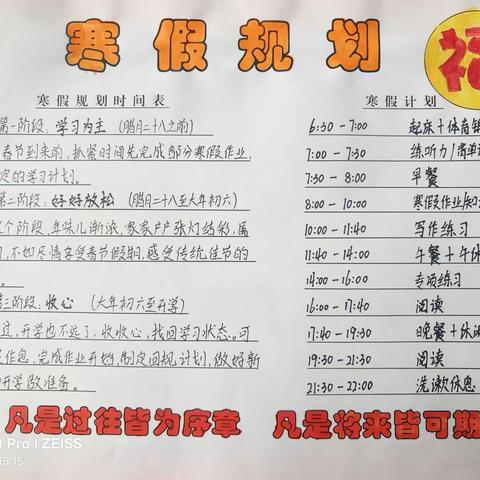 寒假规划
福
寒假规划时间表
第一阶段：学习为主 （腊月二十八之前）
春节到来前，抓紧时间先完成部分寒假作业，
定的学习计划。
第二阶段：好好放松 （腊月二十八至大年初六）
这个阶段，年味儿渐浓，家家户户张灯结彩，属
，不如尽情享受春节假期，感受传统佳节的
。
第三阶段：收心 （大年初六至开学）
过，开学也不远了，收收心，找回学习状态。可
作息、完成作业开始，制定回规计划，做好新
开学做准备。
寒假计划
6:30 - 7:00 起床+体育锻
7:00 - 7:30 练听力/背单词
7:30 - 8:00 早餐
8:00 - 10:00 寒假作业/知识
10:00 - 11:40 写作练习
11:40 - 14:00 午餐+午休
14:00 - 16:00 专项练习
16:00 - 17:40 阅读
17:40 - 19:30 晚餐+休
19:30 - 21:30 阅读
21:30 - 22:00 洗漱休息
凡是过往皆为序章 凡是将来皆可期
Pro | ZEISS
15:15